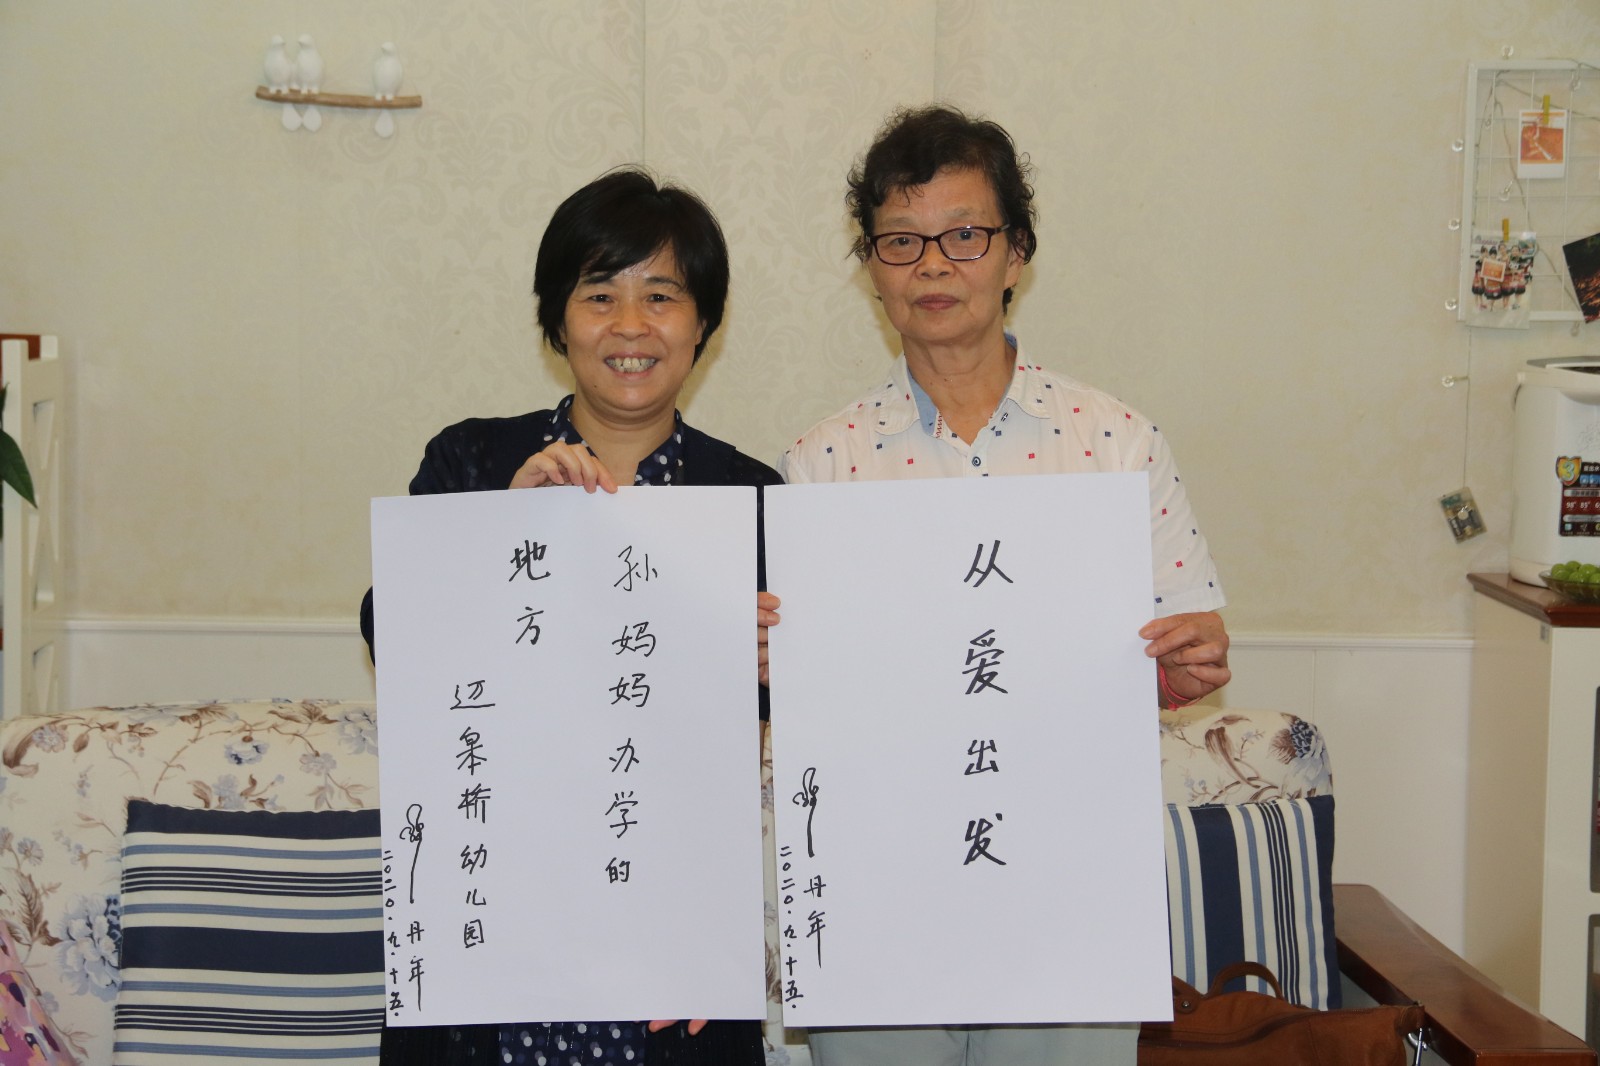 孙妈妈办学的
地方
迈皋桥幼儿园
丹年
二〇二〇.九.十五.
从爱出发
丹年
二〇二〇.九.十五.